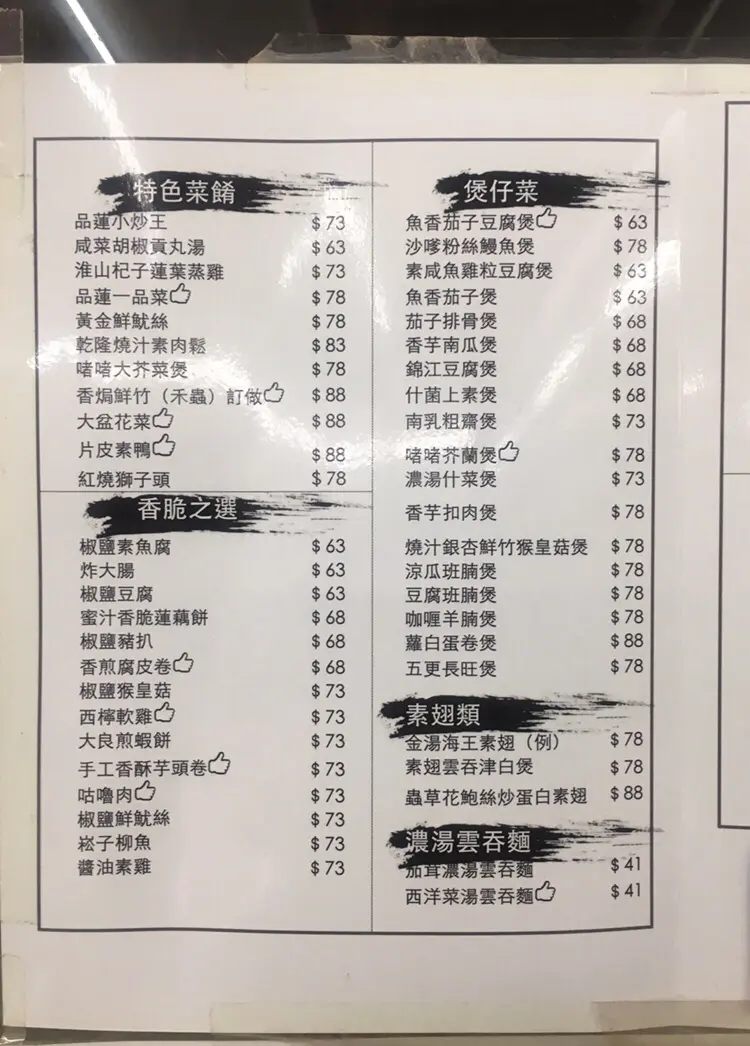 特色菜餚
品蓮小炒王 $73
咸菜胡椒貢丸湯 $63
淮山杞子蓮葉蒸雞 $73
品蓮一品菜 $78
黃金鮮魷絲 $78
乾隆燒汁素肉鬆 $83
啫啫大芥菜煲 $78
香焗鮮竹（禾蟲）訂做 $88
大盆花菜 $88
片皮素鴨 $88
紅燒獅子頭 $78
香脆之選
椒鹽素魚腐 $63
炸大腸 $63
椒鹽豆腐 $63
蜜汁香脆蓮藕餅 $68
椒鹽豬扒 $68
香煎腐皮卷 $68
椒鹽猴皇菇 $73
西檸軟雞 $73
大良煎蝦餅 $73
手工香酥芋頭卷 $73
咕嚕肉 $73
椒鹽鮮魷絲 $73
崧子柳魚 $73
醬油素雞 $73
煲仔菜
魚香茄子豆腐煲 $63
沙嗲粉絲鰻魚煲 $78
素咸魚雞粒豆腐煲 $63
魚香茄子煲 $63
茄子排骨煲 $68
香芋南瓜煲 $68
錦江豆腐煲 $68
什菌上素煲 $68
南乳粗齋煲 $73
啫啫芥蘭煲 $78
濃湯什菜煲 $73
香芋扣肉煲 $78
燒汁銀杏鮮竹猴皇菇煲 $78
涼瓜班腩煲 $78
豆腐班腩煲 $78
咖喱羊腩煲 $78
蘿白蛋卷煲 $88
五更長旺煲 $78
素翅類
金湯海王素翅（例） $78
素翅雲吞津白煲 $78
蟲草花鮑絲炒蛋白素翅 $88
濃湯雲吞麵
茄茸濃湯雲吞麵 $41
西洋菜湯雲吞麵 $41